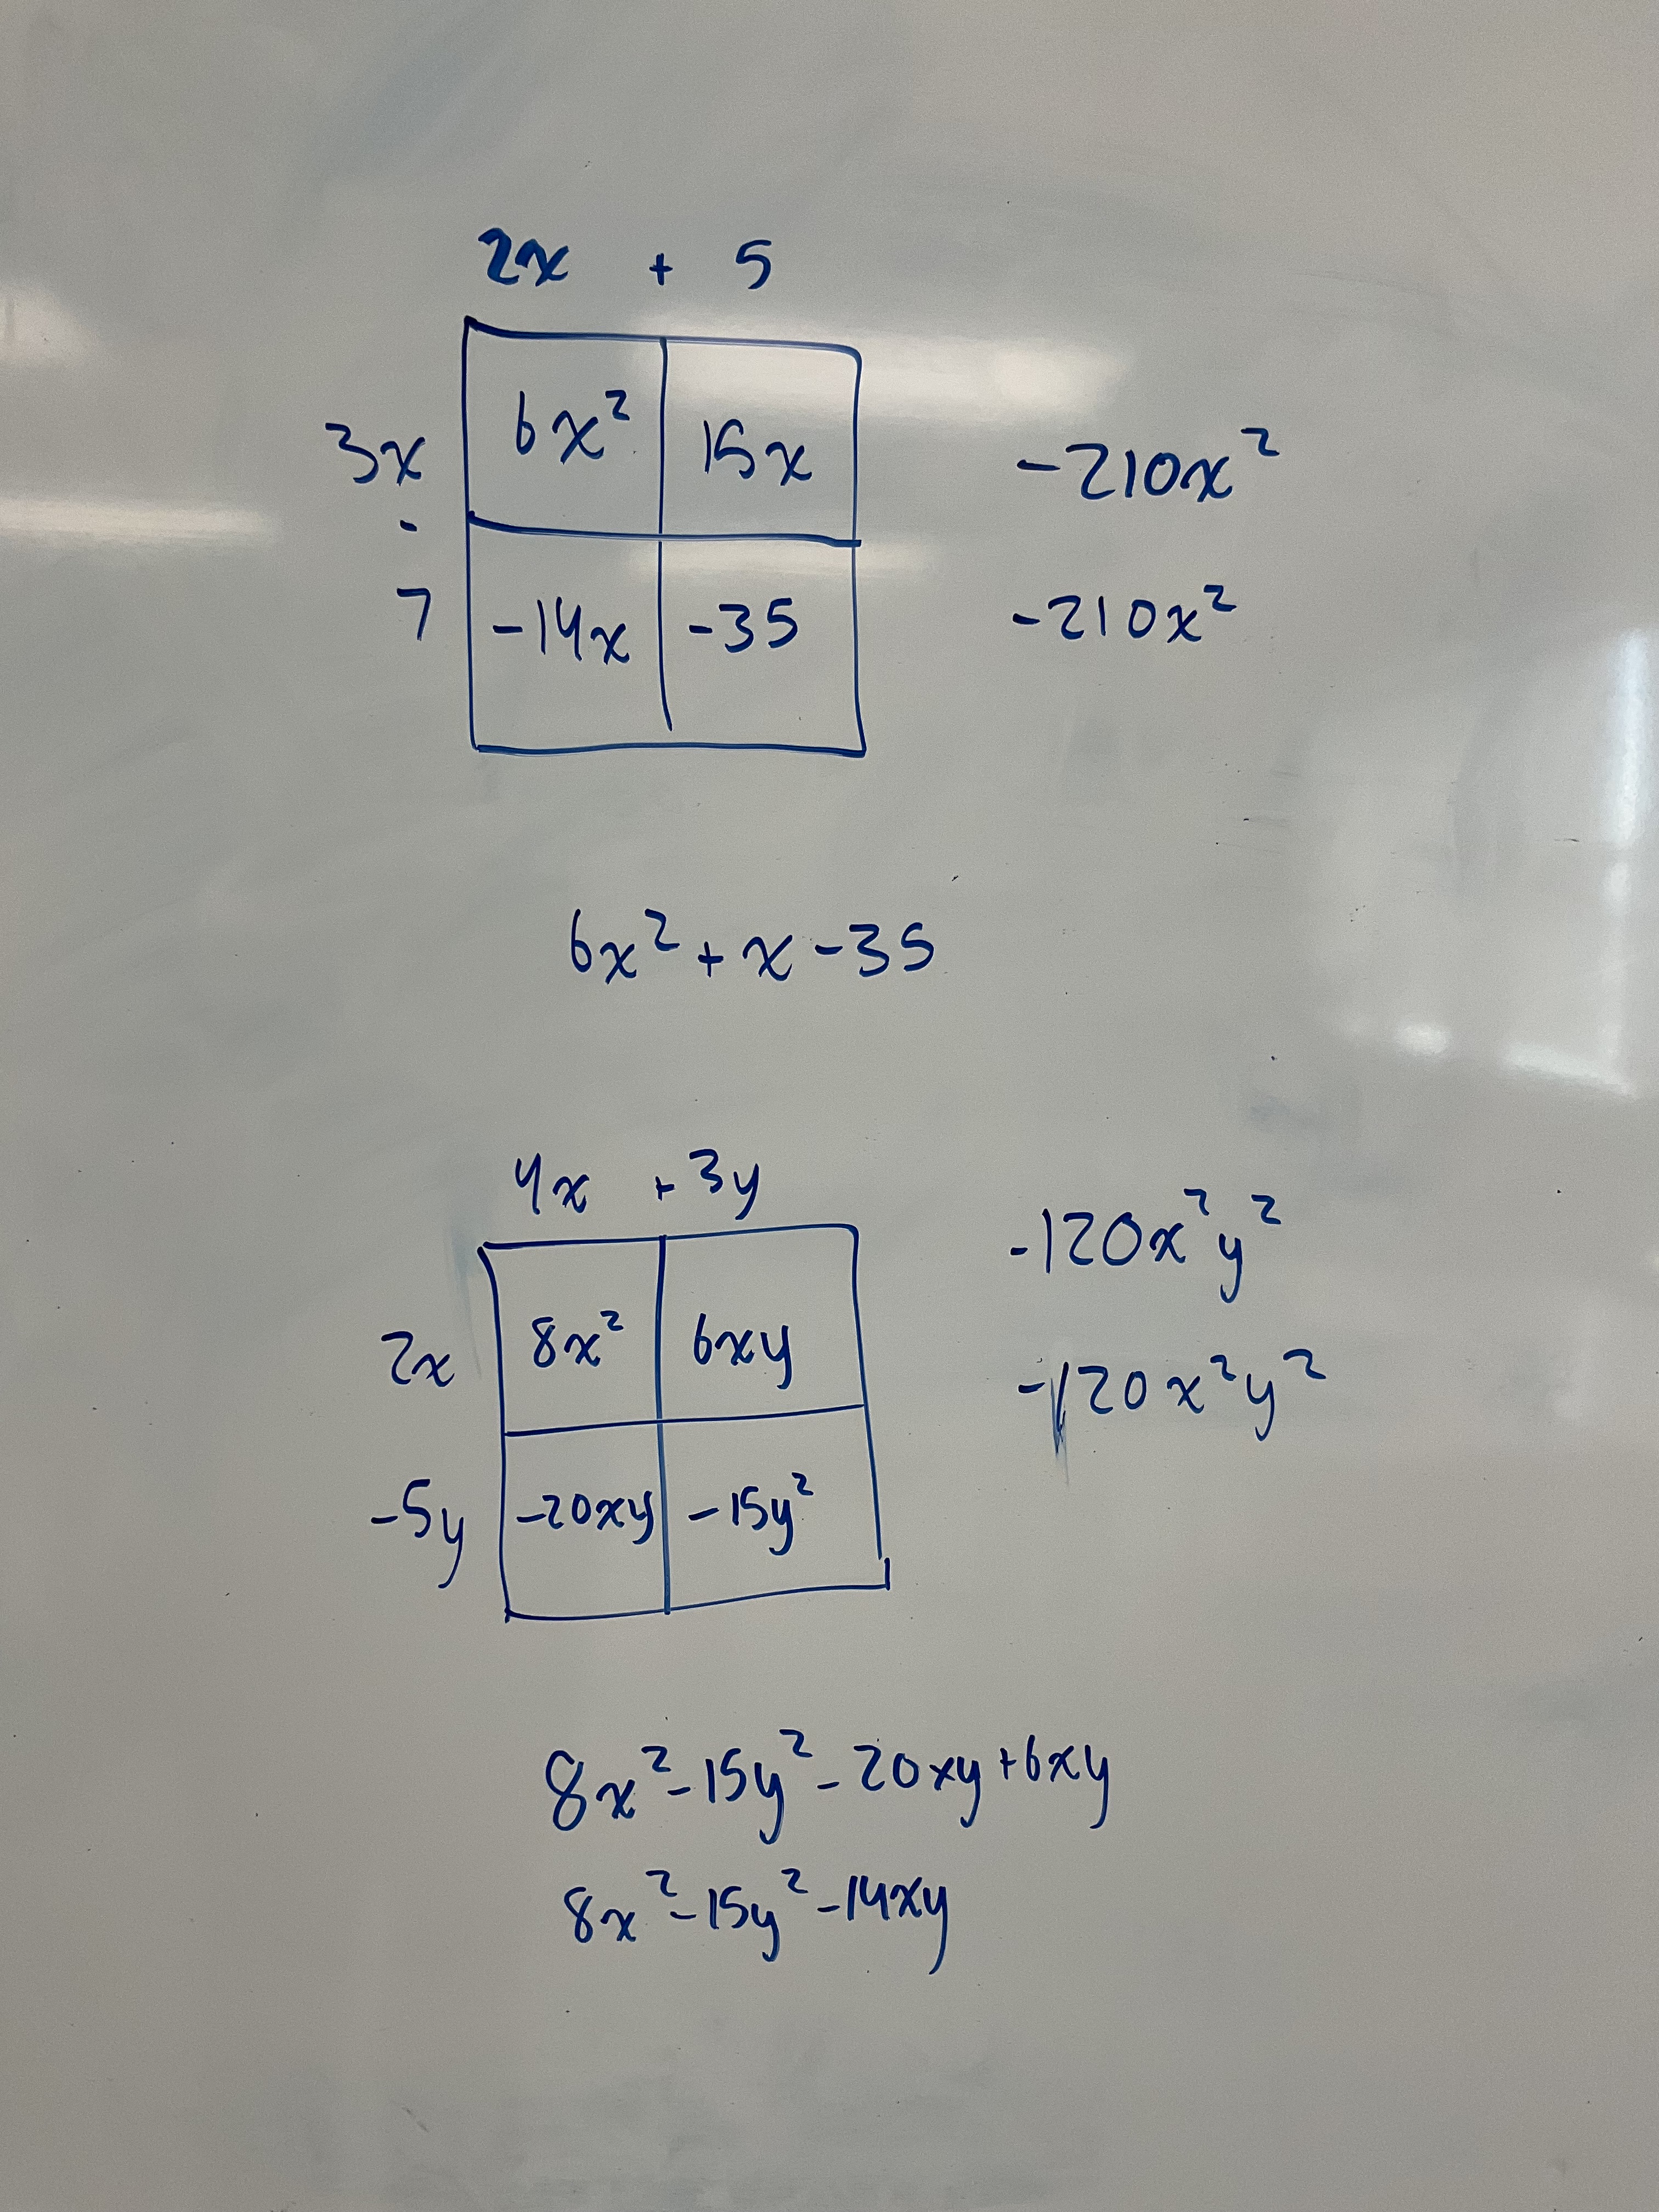 2x + 5
3x 6x² 15x -210x²
- 7 -14x -35 -210x²
6x² + x - 35
4x + 3y
2x 8x² 6xy -120x²y²
-5y -20xy -15y² -120x²y²
8x² - 15y² - 20xy + 6xy
8x² - 15y² - 14xy